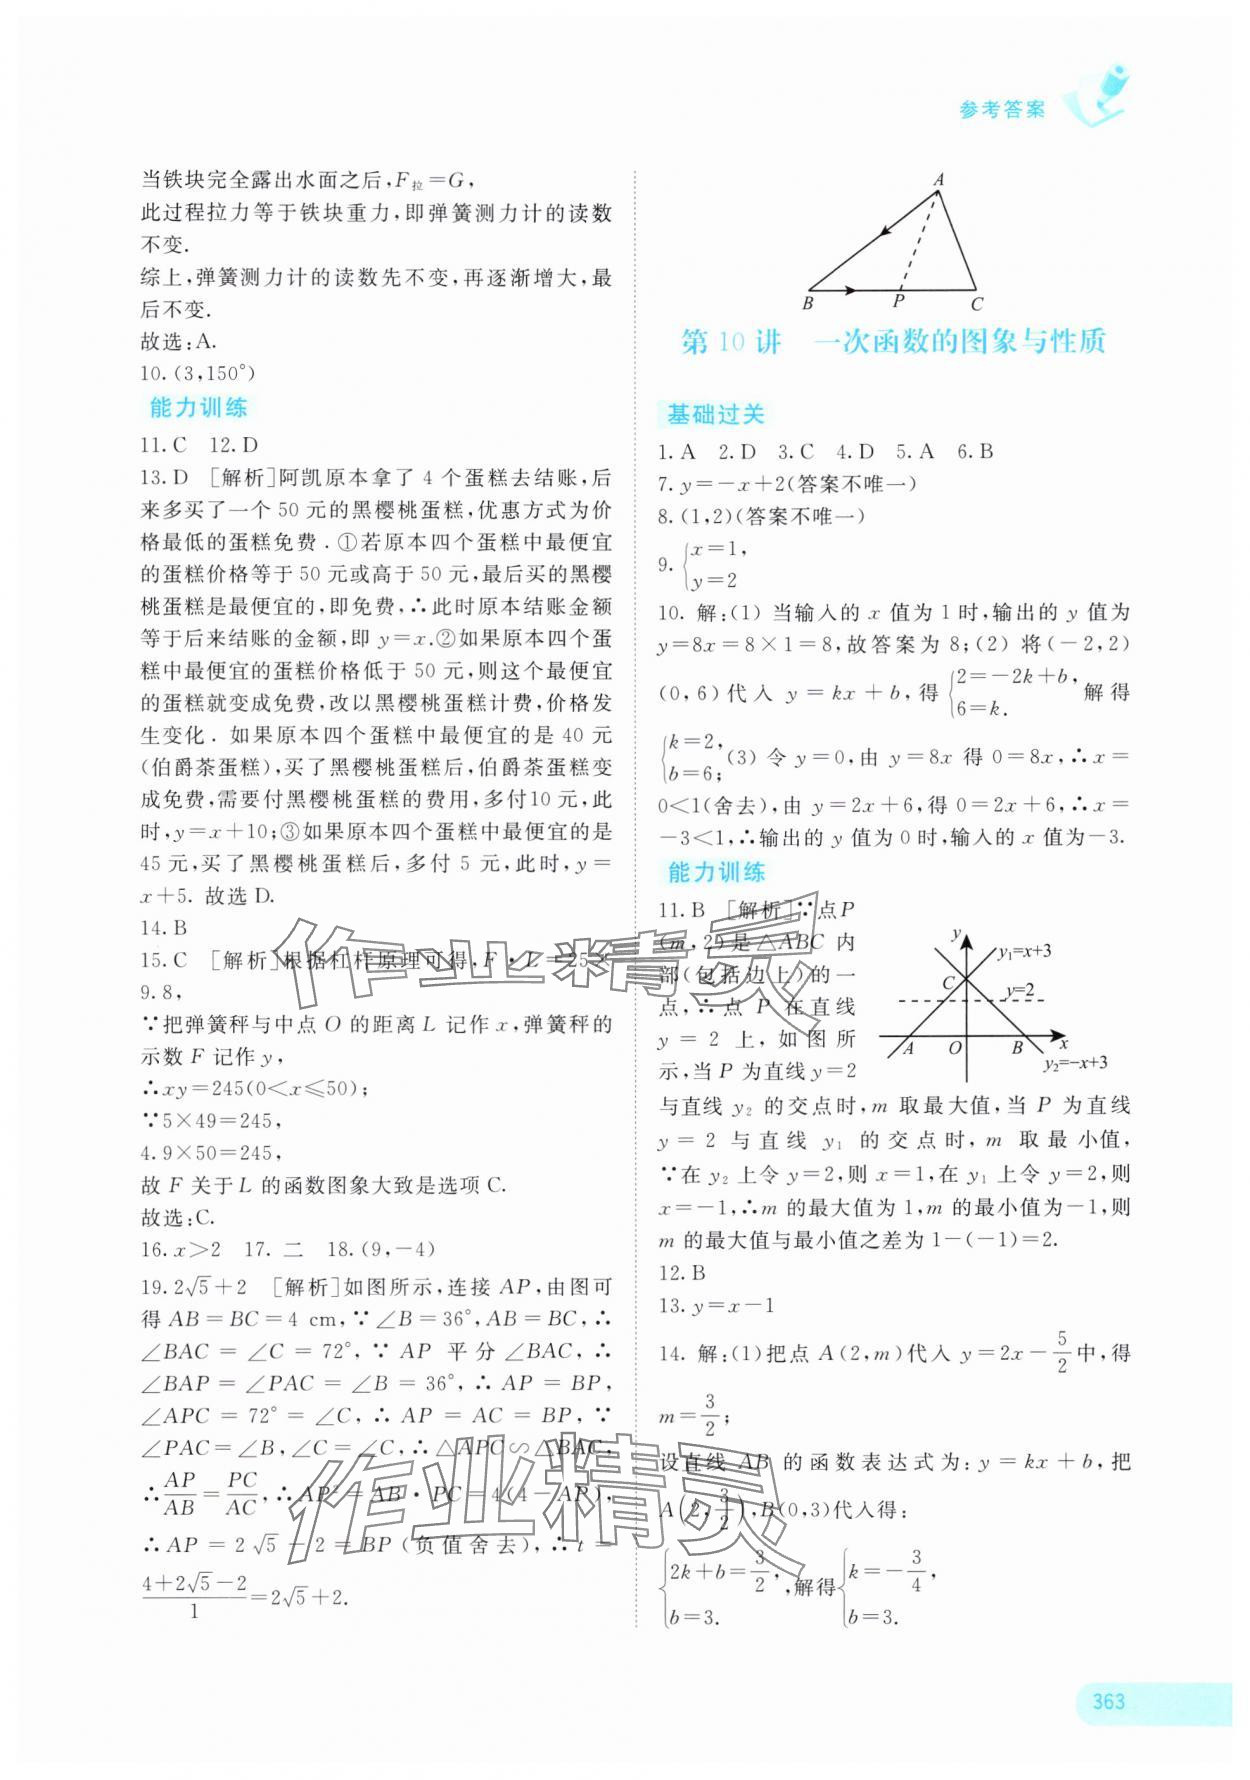 参考答案
当铁块完全露出水面之后,F拉=G,
此过程拉力等于铁块重力,即弹簧测力计的读数
不变.
综上,弹簧测力计的读数先不变,再逐渐增大,最
后不变.
故选:A.
10.(3,150°)
能力训练
11.C 12.D
13.D [解析]阿凯原本拿了 4 个蛋糕去结账,后
来多买了一个 50 元的黑樱桃蛋糕,优惠方式为价
格最低的蛋糕免费.①若原本四个蛋糕中最便宜
的蛋糕价格等于 50 元或高于 50 元,最后买的黑樱
桃蛋糕是最便宜的,即免费,∴此时原本结账金额
等于后来结账的金额,即 y=x.②如果原本四个蛋
糕中最便宜的蛋糕价格低于 50 元,则这个最便宜
的蛋糕就变成免费,改以黑樱桃蛋糕计费,价格发
生变化. 如果原本四个蛋糕中最便宜的是 40 元
(伯爵茶蛋糕),买了黑樱桃蛋糕后,伯爵茶蛋糕变
成免费,需要付黑樱桃蛋糕的费用,多付10 元,此
时,y=x+10;③如果原本四个蛋糕中最便宜的是
45 元,买了黑樱桃蛋糕后,多付 5 元,此时,y=
x+5. 故选 D.
14.B
15.C [解析]根据杠杆原理可得,F·L=25×
9.8,
∵把弹簧秤与中点 O 的距离 L 记作 x,弹簧秤的
示数 F 记作 y,
∴xy=245(0<x≤50);
∵5×49=245,
4.9×50=245,
故 F 关于 L 的函数图象大致是选项 C.
故选:C.
16.x>2 17. 二 18.(9,-4)
19.2√5+2 [解析]如图所示,连接 AP,由图可
得 AB=BC=4 cm,∵∠B=36°,AB=BC,∴
∠BAC=∠C=72°,∵ AP 平分∠BAC,∴
∠BAP=∠PAC=∠B=36°,∴AP=BP,
∠APC=72°=∠C,∴AP=AC=BP,∵
∠PAC=∠B,∠C=∠C,∴△APC∽△BAC,
∴AP/AB=PC/AC,∴AP²=AB·PC=4(4-AP),
∴AP=2√5-2=BP(负值舍去),∴t=
(4+2√5-2)/1=2√5+2.
A
B
P
C
第 10 讲 一次函数的图象与性质
基础过关
1.A 2.D 3.C 4.D 5.A 6.B
7.y=-x+2(答案不唯一)
8.(1,2)(答案不唯一)
9.{x=1,
y=2
10. 解:(1) 当输入的 x 值为 1 时,输出的 y 值为
y=8x=8×1=8,故答案为 8;(2) 将(-2,2)
(0,6)代入 y=kx+b,得{2=-2k+b,
6=k.
解得
{k=2,
b=6;
(3) 令 y=0,由 y=8x 得 0=8x,∴x=
0<1(舍去),由 y=2x+6,得 0=2x+6,∴x=
-3<1,∴输出的 y 值为 0 时,输入的 x 值为-3.
能力训练
11.B [解析]∵点P
(m,2)是△ABC 内
部(包括边上)的一
点,∴点 P 在直线
y=2 上,如图所
示,当 P 为直线y=2
y
y₁=x+3
C
y=2
A
O
B
x
y₂=-x+3
与直线 y₂ 的交点时,m 取最大值,当 P 为直线
y=2 与直线 y₁ 的交点时,m 取最小值,
∵在 y₂ 上令 y=2,则 x=1,在 y₁ 上令 y=2,则
x=-1,∴m 的最大值为 1,m 的最小值为-1,则
m 的最大值与最小值之差为 1-(-1)=2.
12.B
13.y=x-1
14. 解:(1)把点 A(2,m)代入 y=2x-5/2中,得
m=3/2;
设直线 AB 的函数表达式为:y=kx+b,把
A(2,3/2),B(0,3)代入得:
{2k+b=3/2,
b=3.
,解得{k=-3/4,
b=3.
363
作业精灵
作业精灵